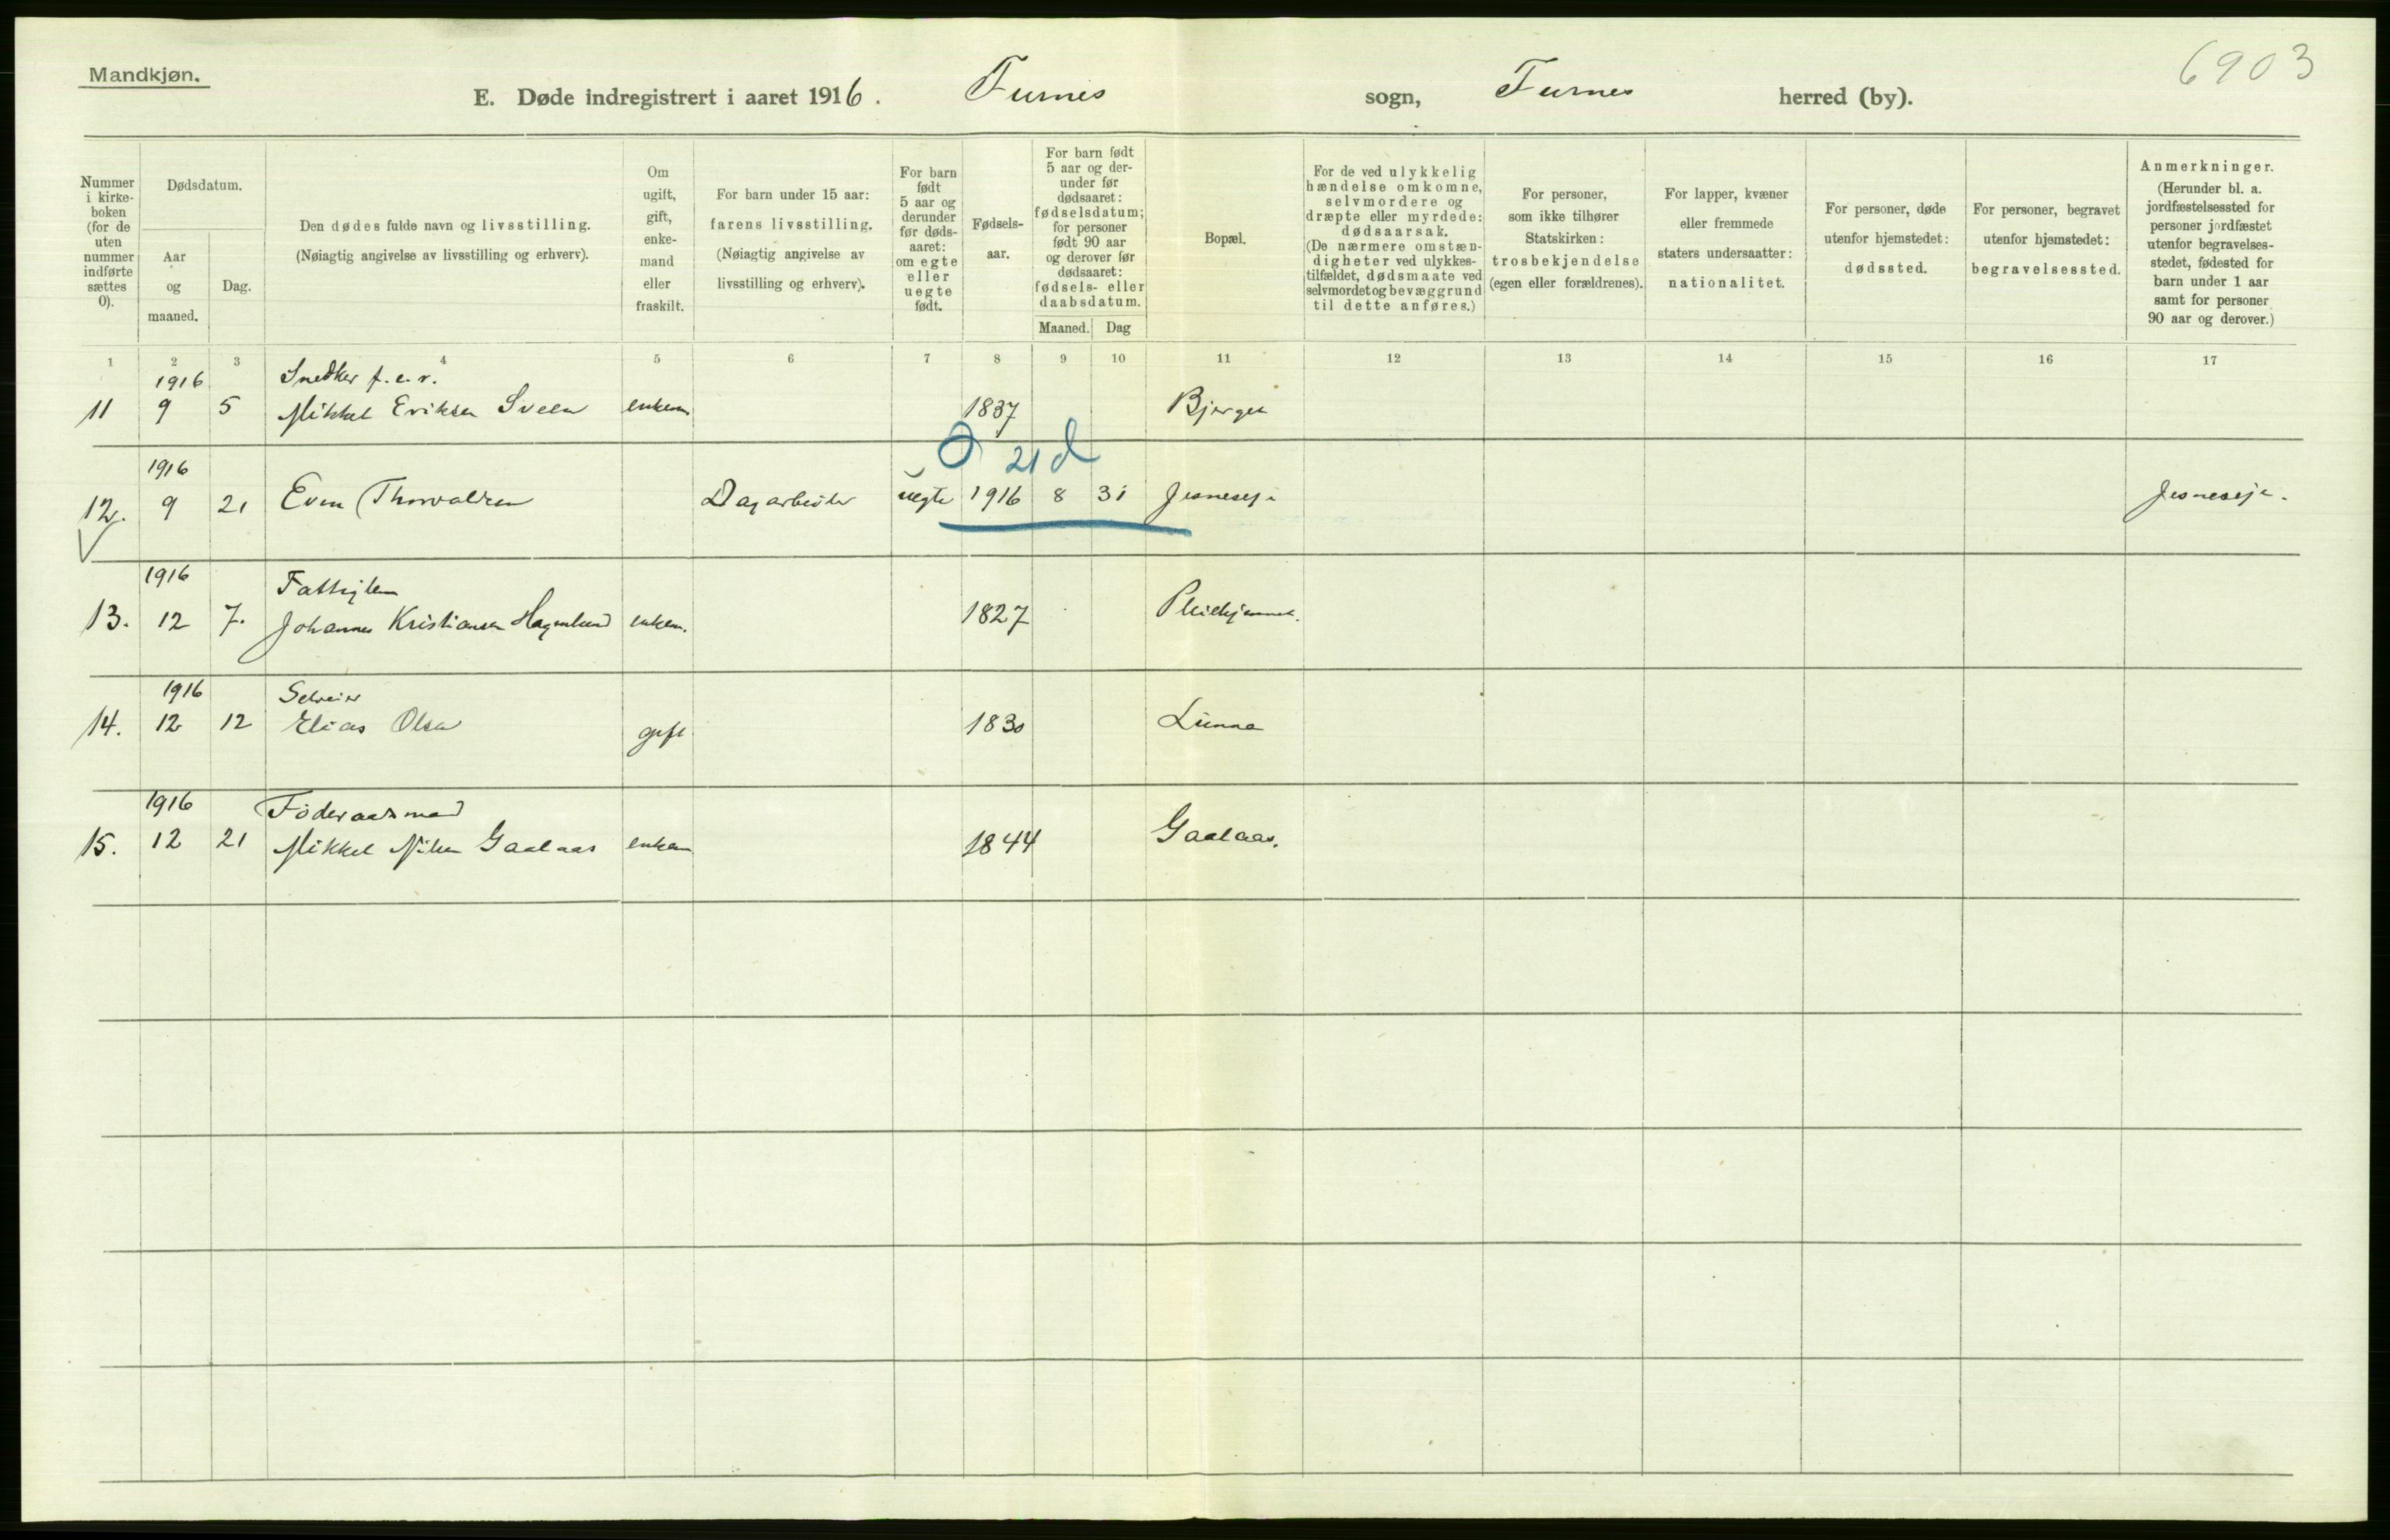 Mandkjøn.
6903
E. Døde indregistrert i aaret 1916. Furnes sogn, Furnes herred (by).
Nummer i kirke-boken (for de uten nummer indførte sættes 0).
Dødsdatum.
Aar og maaned.
Dag.
Den dødes fulde navn og livsstilling.
(Nøiagtig angivelse av livsstilling og erhverv).
Om ugift, gift, enke-mand eller fraskilt.
For barn under 15 aar: farens livsstilling.
(Nøiagtig angivelse av livsstilling og erhverv).
For barn født 5 aar og derunder før døds-aaret: om egte eller uegte født.
Fødsels-aar.
For barn født 5 aar og der-under før dødsaaret: fødselsdatum; for personer født 90 aar og derover før dødsaaret: fødsels- eller daabsdatum.
Maaned. Dag
Bopæl.
For de ved ulykkelig hændelse omkomne, selvmordere og dræpte eller myrdede: dødsaarsak.
(De nærmere omstæn-digheter ved ulykkes-tilfældet, dødsmaate ved selvmordet og bevæggrund til dette anføres.)
For personer, som ikke tilhører Statskirken: trosbekjendelse (egen eller forældrenes).
For lapper, kvæner eller fremmede staters undersaatter: nationalitet.
For personer, døde utenfor hjemstedet: dødssted.
For personer, begravet utenfor hjemstedet: begravelsessted.
Anmerkninger.
(Herunder bl. a. jordfæstelsessted for personer jordfæstet utenfor begravelses-stedet, fødested for barn under 1 aar samt for personer 90 aar og derover.)
1 2 3 4 5 6 7 8 9 10 11 12 13 14 15 16 17
1916 Snedker f.e.r.
11 9 5 Mikkel Eriksen Sveen enkem 1837 Bjerget
0 21 d
1916
12. 9 21 Even Thorvaldsen Dagarbeider uegte 1916 8 31 Jesneseje Jesneseje.
1916 Fattiglem
13. 12 7. Johannes Kristiansen Hagenlund enkem. 1827 Pleiehjemmet.
1916 Selveier
14. 12 12 Elias Olsen gift 1830 Lunna
1916 Föderaadsmand
15. 12 21 Mikkel Nilsen Gaalaas enkem 1844 Gaalaas.